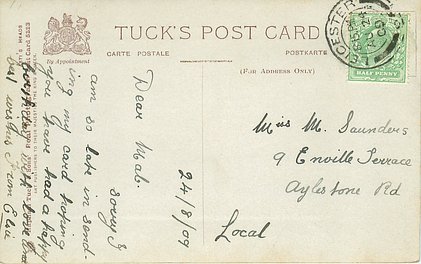 TUCK'S POST CARD
CARTE POSTALE
POSTKARTE
(FOR ADDRESS ONLY)
By Appointment
LEICESTER
HALF PENNY
24/8/09
Dear Mab.
sorry I
am so late in send-
ing my card hoping
you have had a happy
birthday with love and
best wishes from Elsie
Miss M. Saunders
9 Enville Terrace
Aylestone Rd
Local